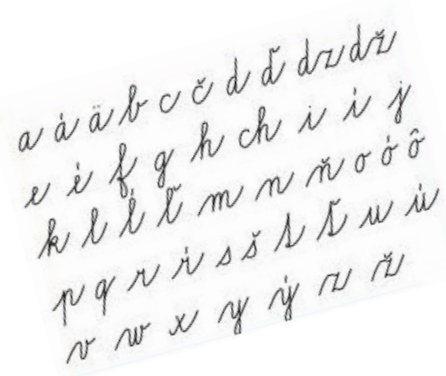 a á ä b c č d ď dz dž
e é f g h ch i í j
k l ĺ ľ m n ň o ó ô
p q r ŕ s š t ť u ú
v w x y ý z ž